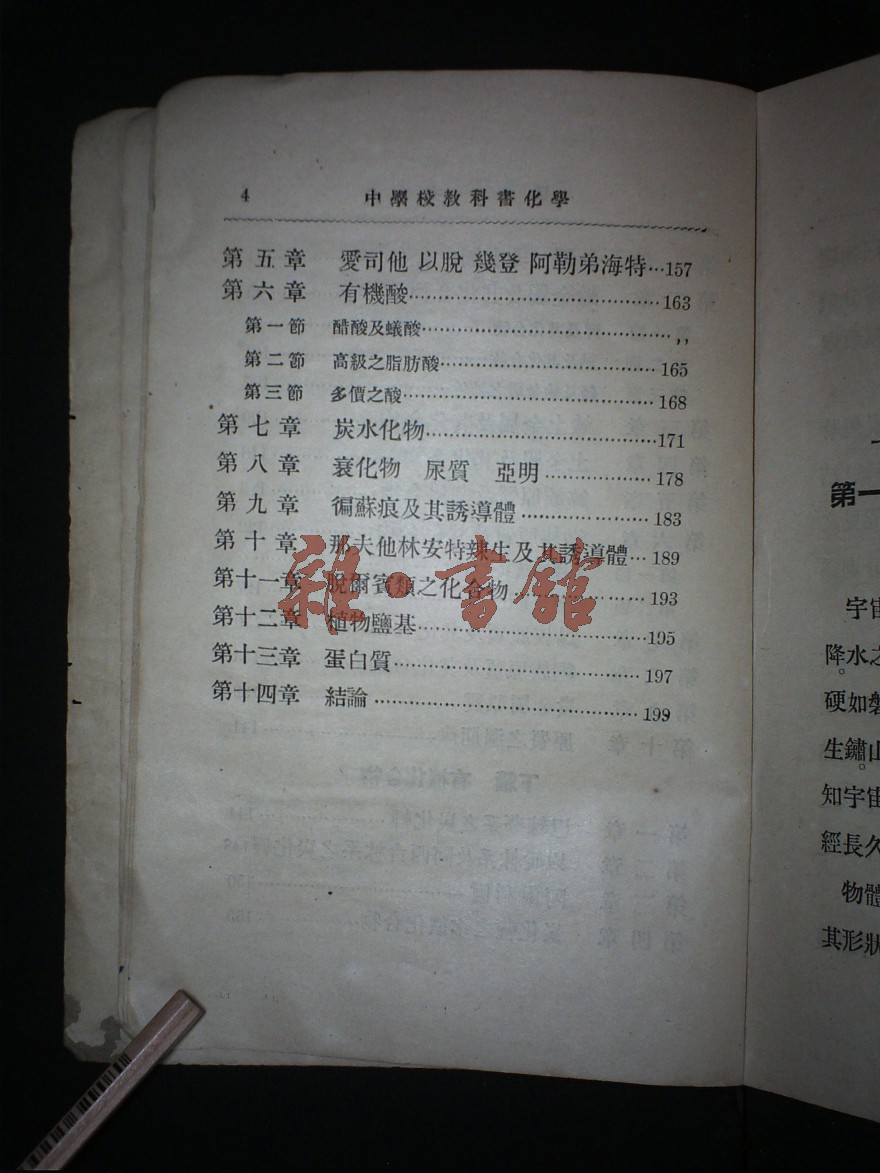 4 中學校教科書化學
第五章 愛司他 以脫 幾登 阿勒弟海特…157
第六章 有機酸……………………………………163
第一節 醋酸及蟻酸……………………………………,,
第二節 高級之脂肪酸………………………………165
第三節 多價之酸……………………………………168
第七章 炭水化物……………………………………171
第八章 衰化物 尿質 亞明………………178
第九章 徧蘇痕及其誘導體…………………183
第十章 那夫他林安特辣生及其誘導體…189
第十一章 脫爾賓類之化合物…………………193
第十二章 植物鹽基…………………………………195
第十三章 蛋白質……………………………………197
第十四章 結論………………………………………199
雜·書館
第一
宇宙
降。水之
硬如磐
生鏽。山
知宇宙
經長久
物體
其形狀